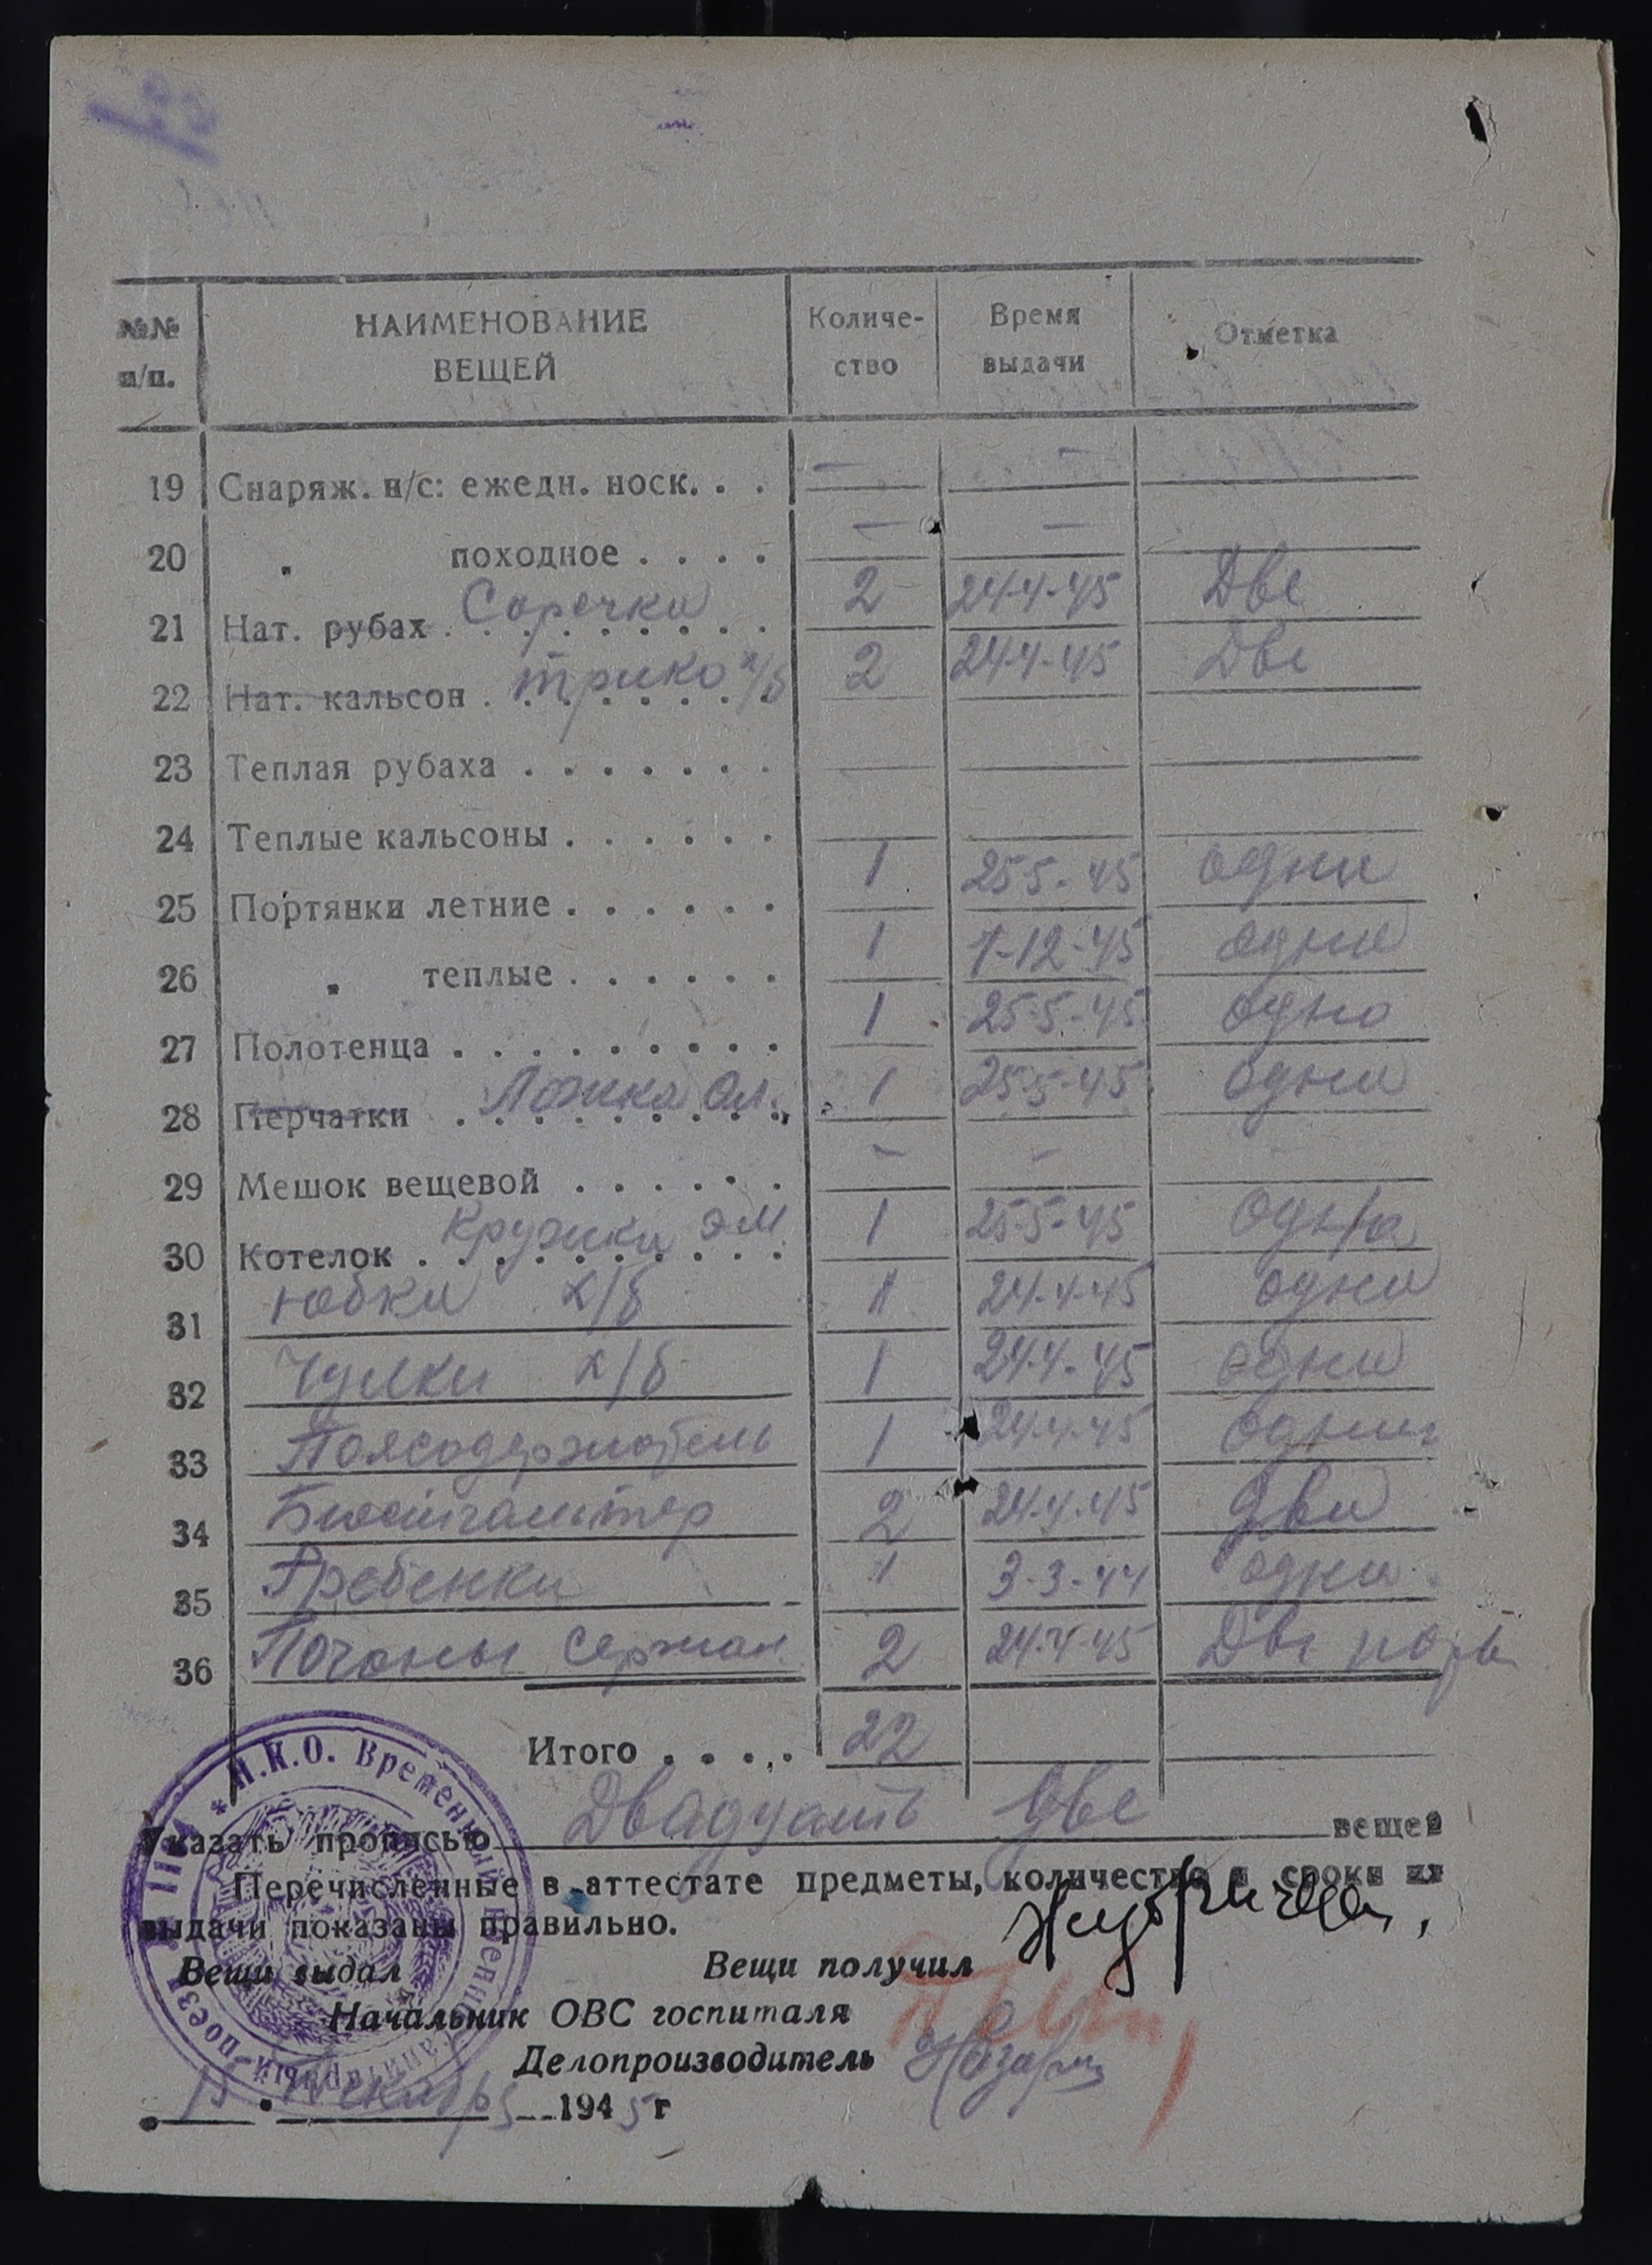 №№ п/п. НАИМЕНОВАНИЕ ВЕЩЕЙ Количе-ство Время выдачи Отметка
19 Снаряж. н/с: ежедн. носк. . . — —
20 „ походное . . . . — —
21 Нат. рубах Сорочки 2 24-4-45 Две
22 Нат. кальсон . трико х/б 2 24-4-45 Две
23 Теплая рубаха . . . . . . .
24 Теплые кальсоны . . . . . .
25 Портянки летние . . . . . . 1 25-5-45 одни
26 „ теплые . . . . . . 1 1-12-45 одни
27 Полотенца . . . . . . . . . 1 25-5-45 одно
28 Перчатки Ложка ал. 1 25-5-45 одни
29 Мешок вещевой . . . . . . — —
30 Котелок Кружки эм. 1 25-5-45 одна
31 юбки х/б 1 24-4-45 одни
32 Чулки х/б 1 24-4-45 одни
33 Поясодержатель 1 24-4-45 один
34 Бюстгальтер 2 24-4-45 два
35 Гребенки 1 3-3-44 одни
36 Погоны сержан. 2 24-4-45 Две пары
Итого . . . . . 22
Указать прописью Двадцать две вещей
Перечисленные в аттестате предметы, количество и сроки их
выдачи показаны правильно.
Вещи выдал Вещи получил
Начальник ОВС госпиталя
Делопроизводитель
15 Декабря 1945 г
Н.К.О. Временный Военно-санитарный поезд